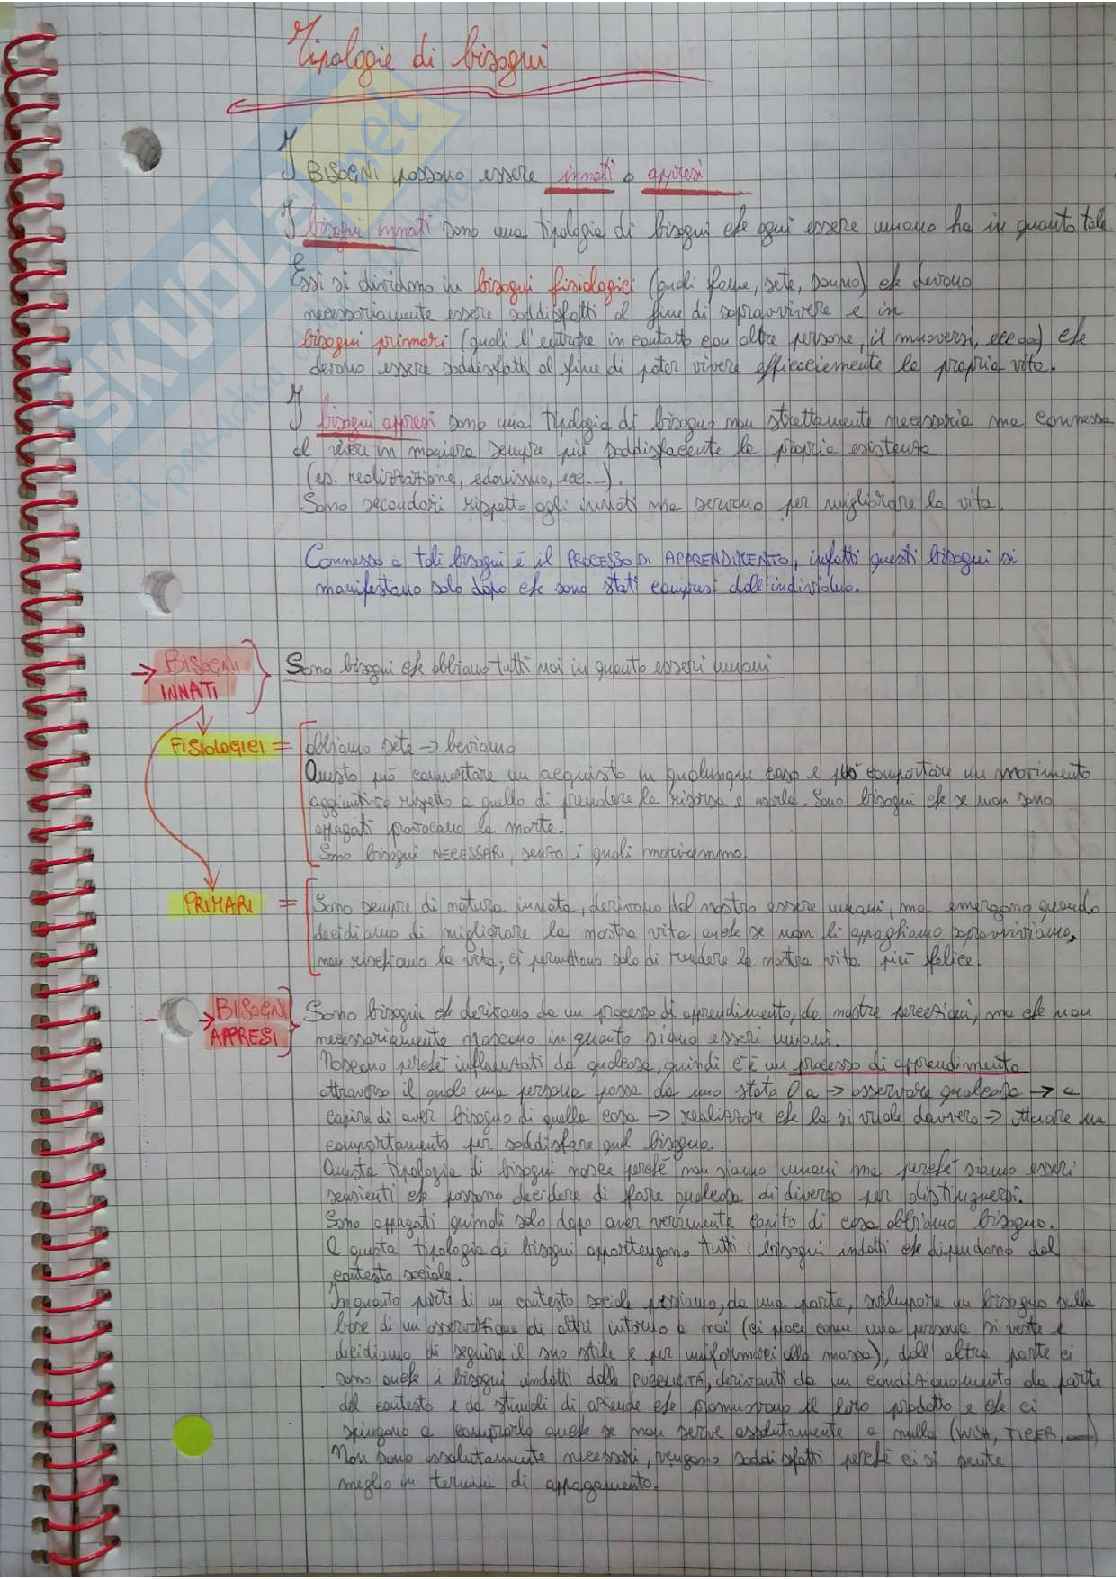 Tipologie di bisogni
I BISOGNI possono essere innati o appresi
I bisogni innati sono una tipologia di bisogni che ogni essere umano ha in quanto tale
Essi si dividono in bisogni fisiologici (quali fame, sete, sonno) che devono
necessariamente essere soddisfatti al fine di sopravvivere e in
bisogni primari (quali l'entrare in contatto con altre persone, il muoversi, ecc) che
devono essere soddisfatti al fine di poter vivere efficacemente la propria vita.
I bisogni appresi sono una tipologia di bisogno non strettamente necessaria ma connessa
al vivere in maniera sempre più soddisfacente la propria esistenza
(es. realizzazione, edonismo, ecc...).
Sono secondari rispetto agli innati ma servono per migliorare la vita.
Connesso a tali bisogni è il PROCESSO DI APPRENDIMENTO, infatti questi bisogni si
manifestano solo dopo che sono stati compresi dall'individuo.
→ BISOGNI INNATI } Sono bisogni che abbiamo tutti noi in quanto esseri umani
FISIOLOGICI = abbiamo sete → beviamo
Questo può comportare un acquisto in qualunque caso e può comportare un movimento
aggiuntivo rispetto a quello di prendere la risorsa e usarla. Sono bisogni che se non sono
appagati provocano la morte.
Sono bisogni NECESSARI, senza i quali moriremmo.
PRIMARI = Sono sempre di natura innata, derivano dal nostro essere umani, ma emergono quando
decidiamo di migliorare la nostra vita anche se non li appaghiamo sopravviviamo,
non rischiamo la vita; ci permettono solo di rendere la nostra vita più felice.
→ BISOGNI APPRESI } Sono bisogni che derivano da un processo di apprendimento, da nostre percezioni, ma che non
necessariamente nascono in quanto siamo esseri umani.
Nascono perché influenzati da qualcosa, quindi c'è un processo di apprendimento
attraverso il quale una persona passa da uno stato 0 a → osservare qualcosa → a
capire di aver bisogno di quella cosa → realizzare che la si vuole davvero → attuare un
comportamento per soddisfare quel bisogno.
Questa tipologia di bisogni nasce perché non siamo umani ma perché siamo esseri
senzienti che possono decidere di fare qualcosa di diverso per distinguersi.
Sono appagati quindi solo dopo aver veramente capito di cosa abbiamo bisogno.
A questa tipologia di bisogni appartengono tutti i bisogni indotti che dipendono dal
contesto sociale.
In quanto parte di un contesto sociale possiamo, da una parte, sviluppare un bisogno sulla
base di un'osservazione di altri intorno a noi (ci piace come una persona si veste e
decidiamo di seguire il suo stile e per uniformarci alla massa), dall'altra parte ci
sono anche i bisogni indotti dalla PUBBLICITÀ, derivanti da un condizionamento da parte
del contesto e da stimoli di aziende che promuovono il loro prodotto e che ci
spingono a comprarlo anche se non serve assolutamente a nulla (WISH, TIGER,
Non sono assolutamente necessari, vengono soddisfatti perché ci si sente
meglio in termini di appagamento.
SKUOLA.net